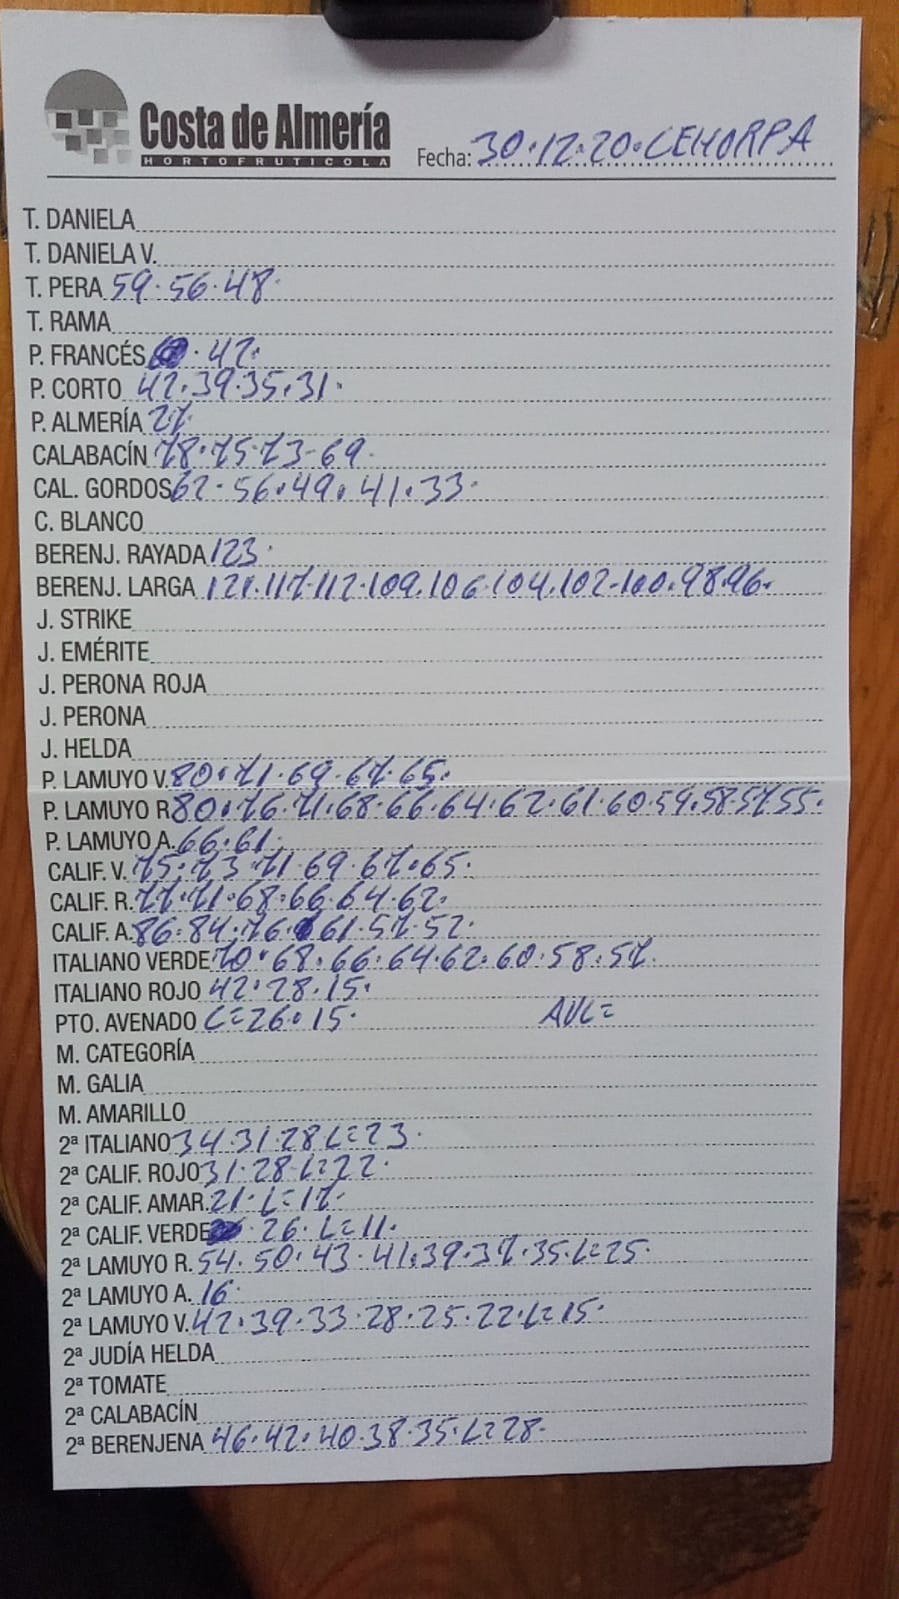 Costa de Almería
HORTOFRUTICOLA
Fecha: 30.12.20. CEHORPA
T. DANIELA
T. DANIELA V.
T. PERA 59.56.48.
T. RAMA
P. FRANCÉS . 42.
P. CORTO 42.39.35.31.
P. ALMERÍA 27.
CALABACÍN 78.75.73-69.
CAL. GORDOS 62.56.49.41.33.
C. BLANCO
BERENJ. RAYADA 123.
BERENJ. LARGA 121.117.112.109.106.104.102.100.98.96.
J. STRIKE
J. EMÉRITE
J. PERONA ROJA
J. PERONA
J. HELDA
P. LAMUYO V. 80.71.69.67.65.
P. LAMUYO R. 80.76.71.68.66.64.62.61.60.59.58.57.55.
P. LAMUYO A. 66.61.
CALIF. V. 75.73.71.69.67.65.
CALIF. R. 77.71.68.66.64.62.
CALIF. A. 86.84.76.61.57.52.
ITALIANO VERDE 70.68.66.64.62.60.58.57.
ITALIANO ROJO 42.28.15.
PTO. AVENADO L=26.15. AVL=
M. CATEGORÍA
M. GALIA
M. AMARILLO
2ª ITALIANO 34.31.28 L=23.
2ª CALIF. ROJO 31.28.L=22.
2ª CALIF. AMAR. 21.L=17.
2ª CALIF. VERDE . 26.L=11.
2ª LAMUYO R. 54.50.43.41.39.37.35.L=25.
2ª LAMUYO A. 16.
2ª LAMUYO V. 42.39.33.28.25.22.L=15.
2ª JUDÍA HELDA
2ª TOMATE
2ª CALABACÍN
2ª BERENJENA 46.42.40.38.35.L=28.